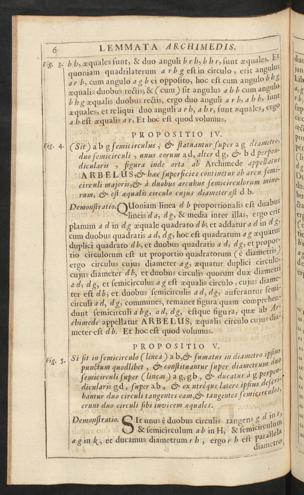 6 LEMMATA ARCHIMEDIS.
Fig. 3. h b, æquales sunt, & duo anguli b r h, b h r, sunt æquales. Et
quoniam quadrilaterum a r h g est in circulo, erit angulus
a r h, cum angulo a g h ei opposito, hoc est cum angulo b h g
æqualis duobus rectis, & (cum) sit angulus a b h cum angulo
b h g æqualis duobus rectis, ergo duo anguli a r h, a b h, sunt
æquales, et reliqui duo anguli a r b, a b r, sunt æquales, ergo
a b est æqualis a r. Et hoc est quod volumus.
PROPOSITIO IV.
Fig. 4. (Sit) a b g semicirculus, & statuantur super a g diametro,
duo semicirculi, unus eorum a d, alter d g, & b d perpen-
dicularis, figura inde orta ab Archimede appellatur
ARBELUS, & hæc superficies continetur ab arcu semi-
circuli majoris, & a duobus arcubus semicirculorum mino-
rum, & est æqualis circulo cujus diameter est d b.
Demonstratio. Quoniam linea d b proportionalis est duabus
lineis d a, d g, & media inter illas, ergo erit
planum a d in d g æquale quadrato d b; et addatur a d in d g,
cum duobus quadratis a d, d g, hoc est quadratum a g æquatur
duplici quadrato d b, et duobus quadratis a d, d g, et propor-
tio circulorum est ut proportio quadratorum (e diametris)
ergo circulus cujus diameter a g, æquatur duplici circulo
cujus diameter d b, et duobus circulis quorum duæ diametri
a d, d g, et semicirculus a g est æqualis circulo, cujus diame-
ter est d b; et duobus semicirculis a d, d g, auferantur semi-
circuli a d, d g, communes, remanet figura quam comprehen-
dunt semicirculi a b g, a d, d g, estque figura, quæ ab Ar-
chimede appellatur ARBELUS, æqualis circulo cujus dia-
meter est d b. Et hoc est quod volumus.
PROPOSITIO V.
Fig. 5. Si sit in semicirculo (linea) a b, & sumatur in diametro ipsius
punctum quodlibet, & constituantur super diametrum duo
semicirculi super (lineam) a g, g b, & ducatur a g perpen-
dicularis g d, super a b, & ex utrâque latere ipsius descri-
bantur duo circuli tangentes eam, & tangentes semicirculos,
erunt duo circuli sibi invicem æquales.
Demonstratio. Sit unus è duobus circulis tangens g d in t,
& semicirculum a b in H, & semicirculum
a g in k, et ducamus diametrum r h, ergo r h est parallela
diametro,